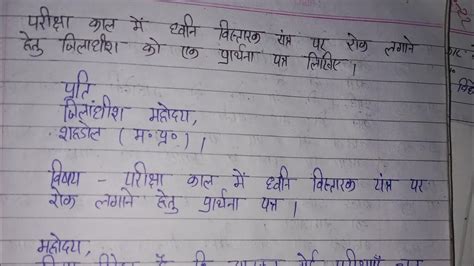 परीक्षा काल में ध्वनि विस्तारक यंत्र पर रोक लगाने
हेतु जिलाधीश को एक प्रार्थना पत्र लिखिए।
प्रति
जिलाधीश महोदय,
शहडोल (म॰प्र॰)।
विषय - परीक्षा काल में ध्वनि विस्तारक यंत्र पर
रोक लगाने हेतु प्रार्थना पत्र।
महोदय,